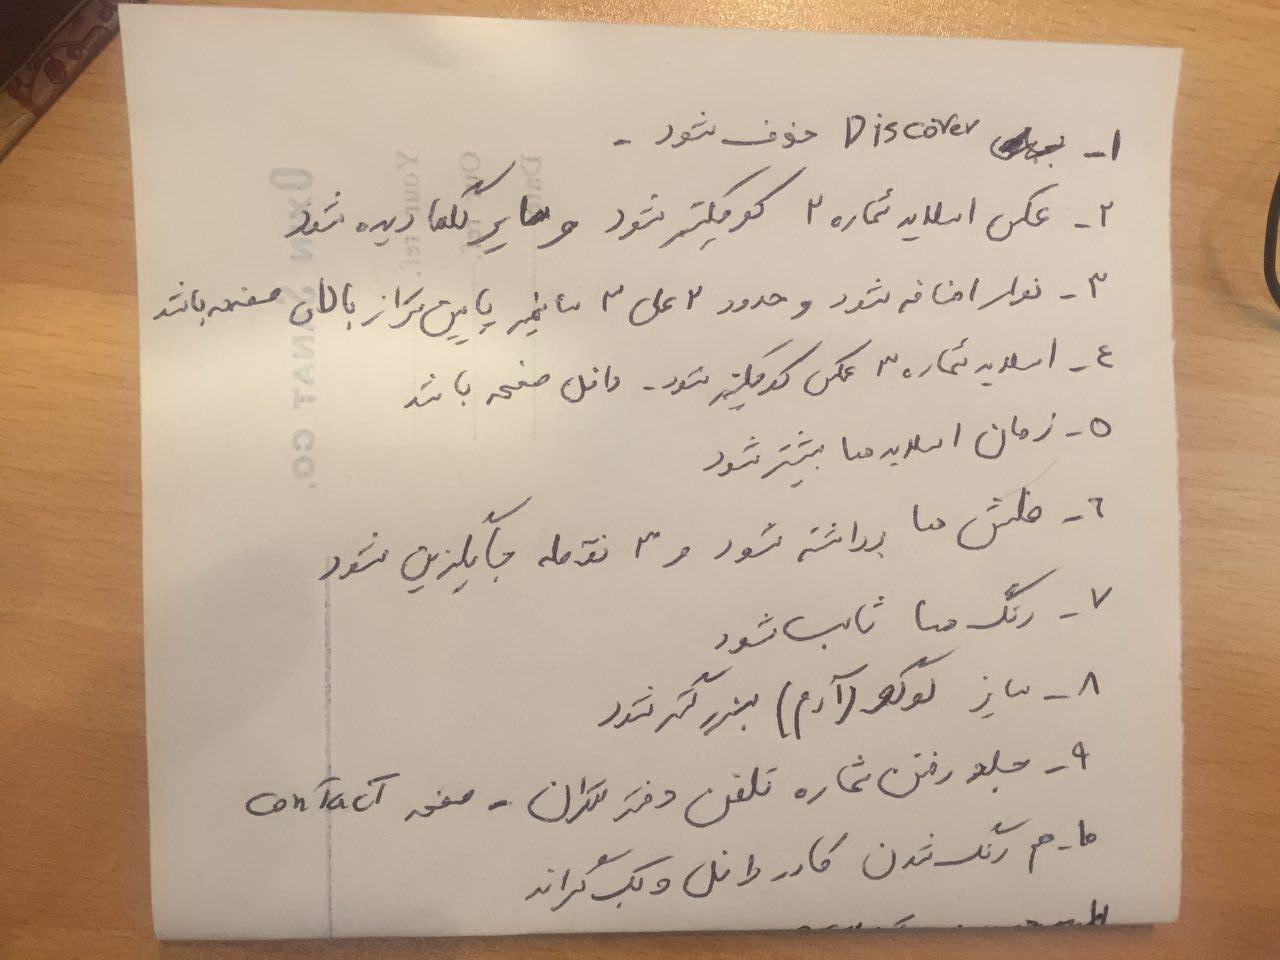 ۱- Discover حذف شود -
۲- عکس اسلاید شماره ۲ کوچکتر شود و سایر گلها دیده شود
۳- نوار اضافه شود و حدود ۲ الی ۳ سانتیمتر پایین تر از بالای صفحه باشد
٤- اسلاید شماره ۳ عکس کوچکتر شود - داخل صفحه باشد
۵- زمان اسلایدها بیشتر شود
٦- فلش ها برداشته شود و ۳ نقطه جایگزین شود
۷- رنگ ها ثابت شود
۸- سایز لوگو (آرم) بزرگتر شود
۹- جلو رفتن شماره تلفن دفتر تهران - صفحه Contact
۱۰- هم رنگ شدن کادر داخل و بک گراند
Your ref.
Date
CO.